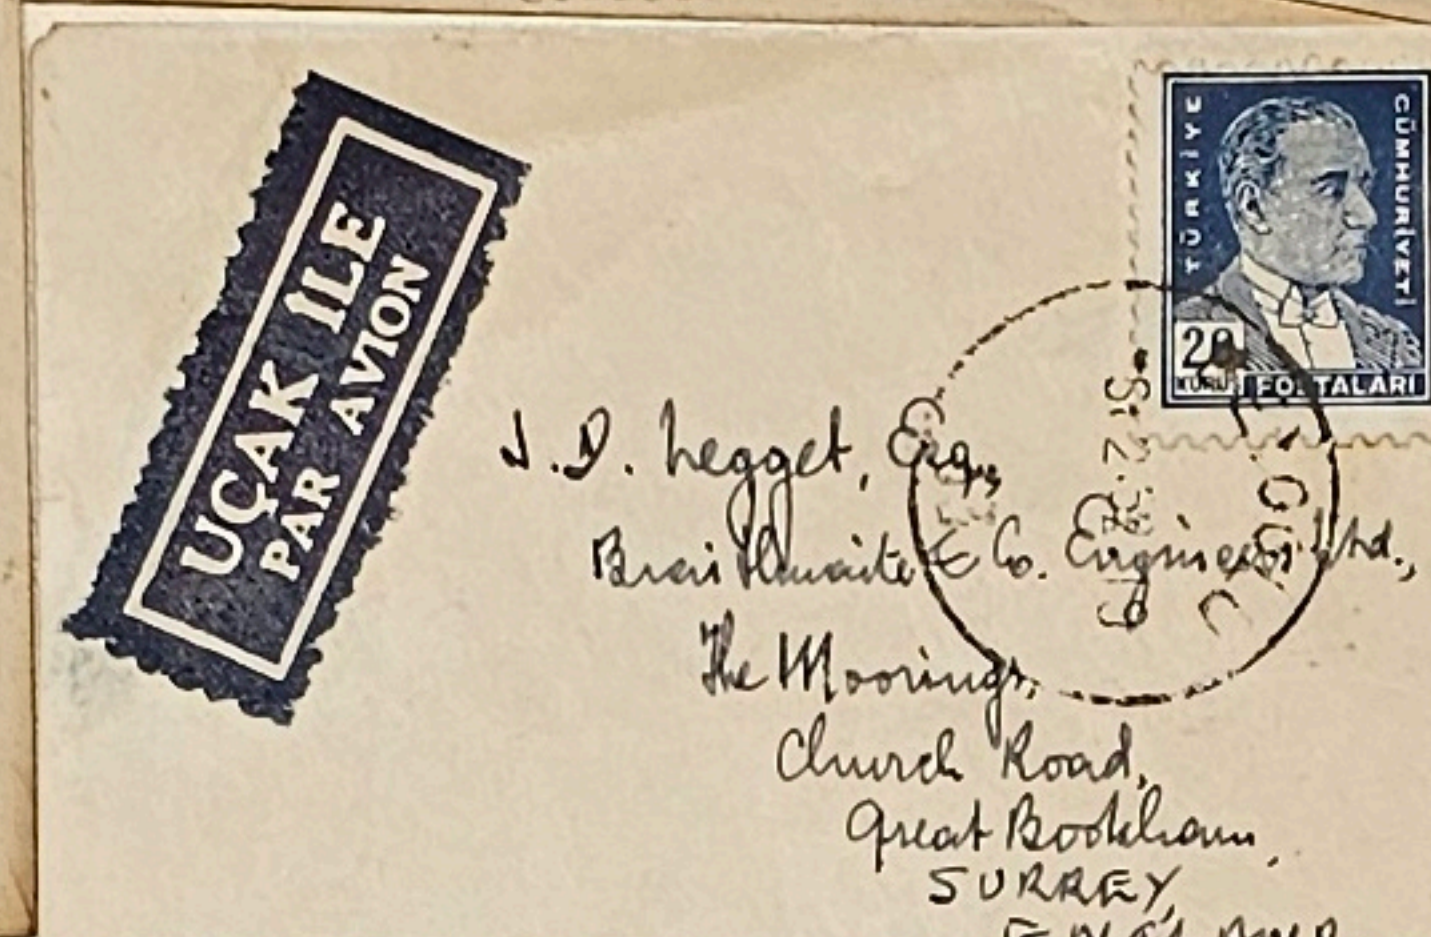 UÇAK İLE
PAR AVION
TÜRKİYE
CÜMHURİYETİ
POSTALARI
J. D. Legget, Esq.,
Braithwaite & Co. Engineers Ltd.,
The Moorings,
Church Road,
Great Bookham,
SURREY,
ENGLAND